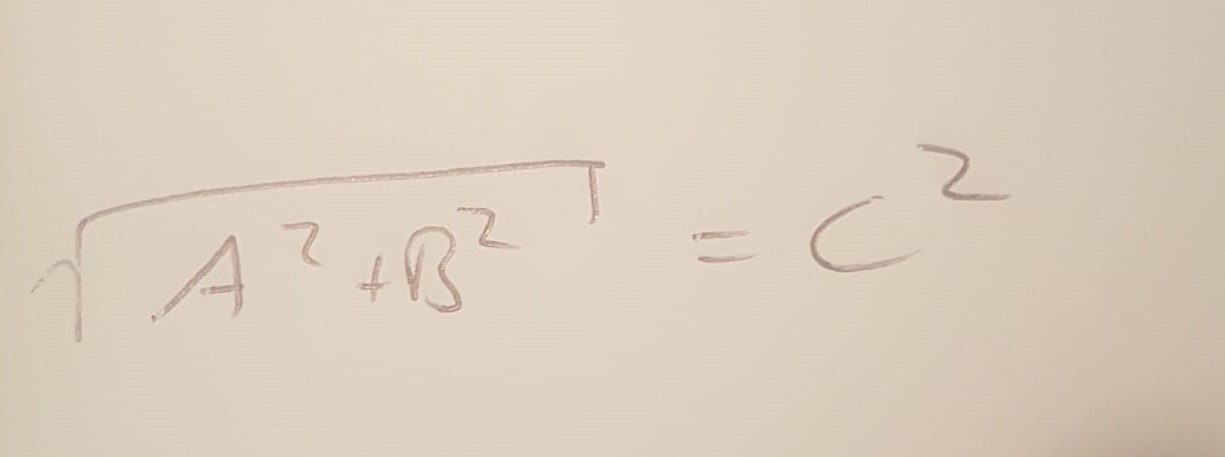 √(A² + B²) = C²